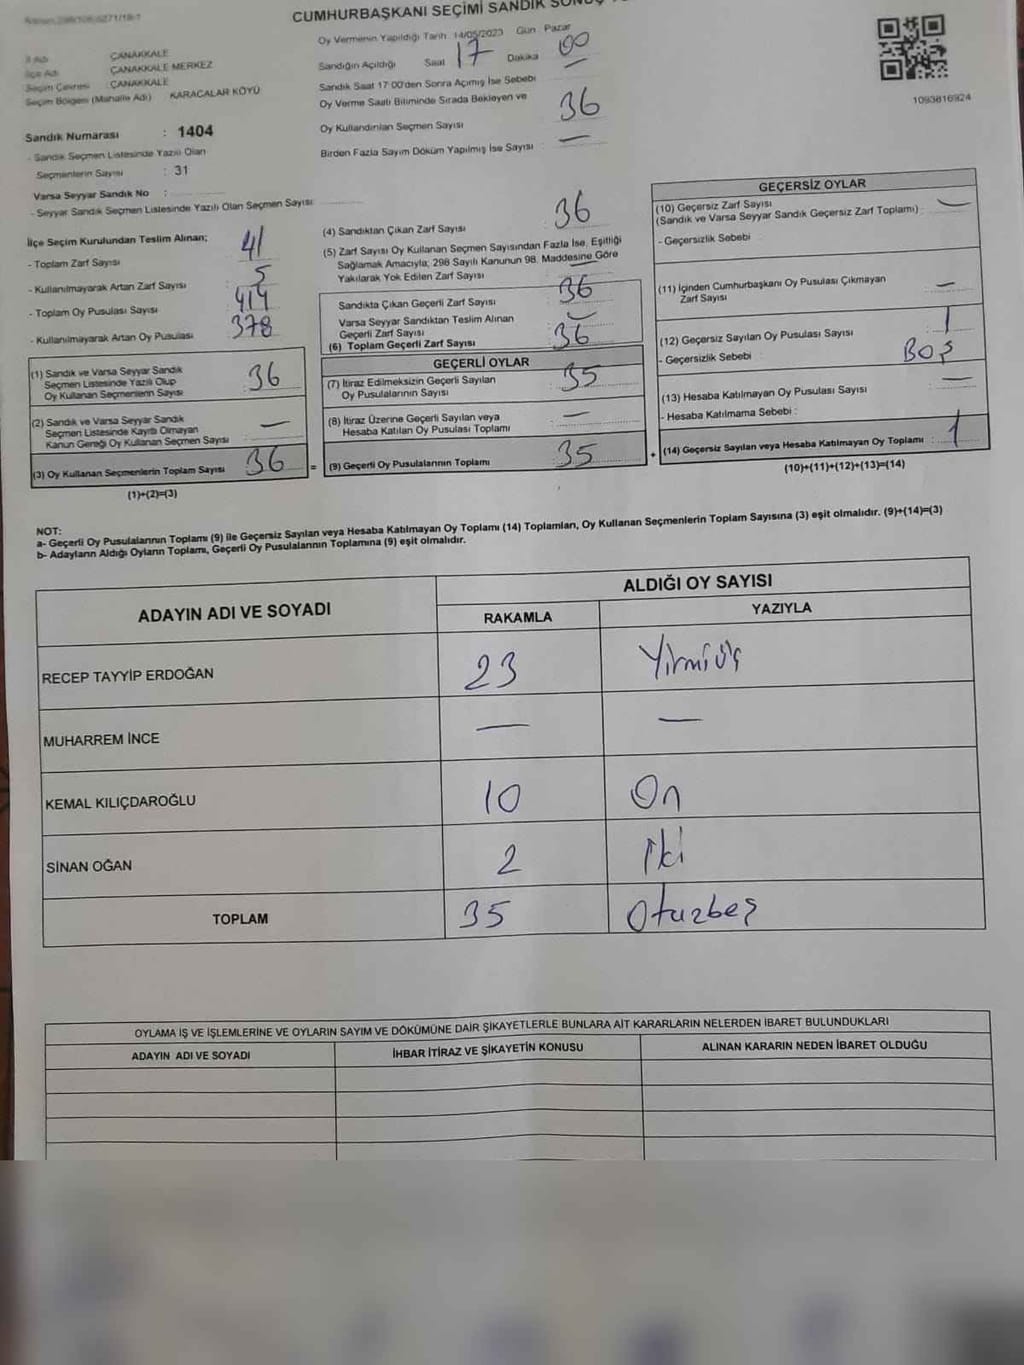 CUMHURBAŞKANI SEÇİMİ SANDIK
Oy Vermenin Yapıldığı Tarih : 14/05/2023 Gün : Pazar
Sandığın Açıldığı Saat 17 Dakika 00
Sandık Saat 17:00'den Sonra Açımış İse Sebebi
Oy Verme Saati Bitiminde Sırada Bekleyen ve
Oy Kullandırılan Seçmen Sayısı 36
Birden Fazla Sayım Döküm Yapılmış İse Sayısı : —
1093816924
İl Adı : ÇANAKKALE
İlçe Adı : ÇANAKKALE MERKEZ
Seçim Çevresi : ÇANAKKALE
Seçim Bölgesi (Mahalle Adı) : KARACALAR KÖYÜ
Sandık Numarası : 1404
- Sandık Seçmen Listesinde Yazılı Olan
Seçmenlerin Sayısı : 31
Varsa Seyyar Sandık No :
- Seyyar Sandık Seçmen Listesinde Yazılı Olan Seçmen Sayısı:
İlçe Seçim Kurulundan Teslim Alınan;
- Toplam Zarf Sayısı : 41
- Kullanılmayarak Artan Zarf Sayısı : 5
- Toplam Oy Pusulası Sayısı : 414
- Kullanılmayarak Artan Oy Pusulası : 378
(1) Sandık ve Varsa Seyyar Sandık
Seçmen Listesinde Yazılı Olup
Oy Kullanan Seçmenlerin Sayısı : 36
(2) Sandık ve Varsa Seyyar Sandık
Seçmen Listesinde Kayıtlı Olmayan
Kanun Gereği Oy Kullanan Seçmen Sayısı : —
(3) Oy Kullanan Seçmenlerin Toplam Sayısı : 36
(1)+(2)=(3)
(4) Sandıktan Çıkan Zarf Sayısı : 36
(5) Zarf Sayısı Oy Kullanan Seçmen Sayısından Fazla İse, Eşitliği
Sağlamak Amacıyla; 298 Sayılı Kanunun 98. Maddesine Göre
Yakılarak Yok Edilen Zarf Sayısı : —
Sandıkta Çıkan Geçerli Zarf Sayısı : 36
Varsa Seyyar Sandıktan Teslim Alınan
Geçerli Zarf Sayısı : —
(6) Toplam Geçerli Zarf Sayısı : 36
GEÇERLİ OYLAR
(7) İtiraz Edilmeksizin Geçerli Sayılan
Oy Pusulalarının Sayısı : 35
(8) İtiraz Üzerine Geçerli Sayılan veya
Hesaba Katılan Oy Pusulası Toplamı : —
= (9) Geçerli Oy Pusulalarının Toplamı : 35
GEÇERSİZ OYLAR
(10) Geçersiz Zarf Sayısı
(Sandık ve Varsa Seyyar Sandık Geçersiz Zarf Toplamı) : —
- Geçersizlik Sebebi :
(11) İçinden Cumhurbaşkanı Oy Pusulası Çıkmayan
Zarf Sayısı : —
(12) Geçersiz Sayılan Oy Pusulası Sayısı : 1
- Geçersizlik Sebebi : BOŞ
(13) Hesaba Katılmayan Oy Pusulası Sayısı : —
- Hesaba Katılmama Sebebi :
+ (14) Geçersiz Sayılan veya Hesaba Katılmayan Oy Toplamı : 1
(10)+(11)+(12)+(13)=(14)
NOT:
a- Geçerli Oy Pusulalarının Toplamı (9) ile Geçersiz Sayılan veya Hesaba Katılmayan Oy Toplamı (14) Toplamları, Oy Kullanan Seçmenlerin Toplam Sayısına (3) eşit olmalıdır. (9)+(14)=(3)
b- Adayların Aldığı Oyların Toplamı, Geçerli Oy Pusulalarının Toplamına (9) eşit olmalıdır.
ADAYIN ADI VE SOYADI
ALDIĞI OY SAYISI
RAKAMLA YAZIYLA
RECEP TAYYİP ERDOĞAN 23 Yirmiüç
MUHARREM İNCE — —
KEMAL KILIÇDAROĞLU 10 On
SİNAN OĞAN 2 İki
TOPLAM 35 Otuzbeş
OYLAMA İŞ VE İŞLEMLERİNE VE OYLARIN SAYIM VE DÖKÜMÜNE DAİR ŞİKAYETLERLE BUNLARA AİT KARARLARIN NELERDEN İBARET BULUNDUKLARI
ADAYIN ADI VE SOYADI İHBAR İTİRAZ VE ŞİKAYETİN KONUSU ALINAN KARARIN NEDEN İBARET OLDUĞU